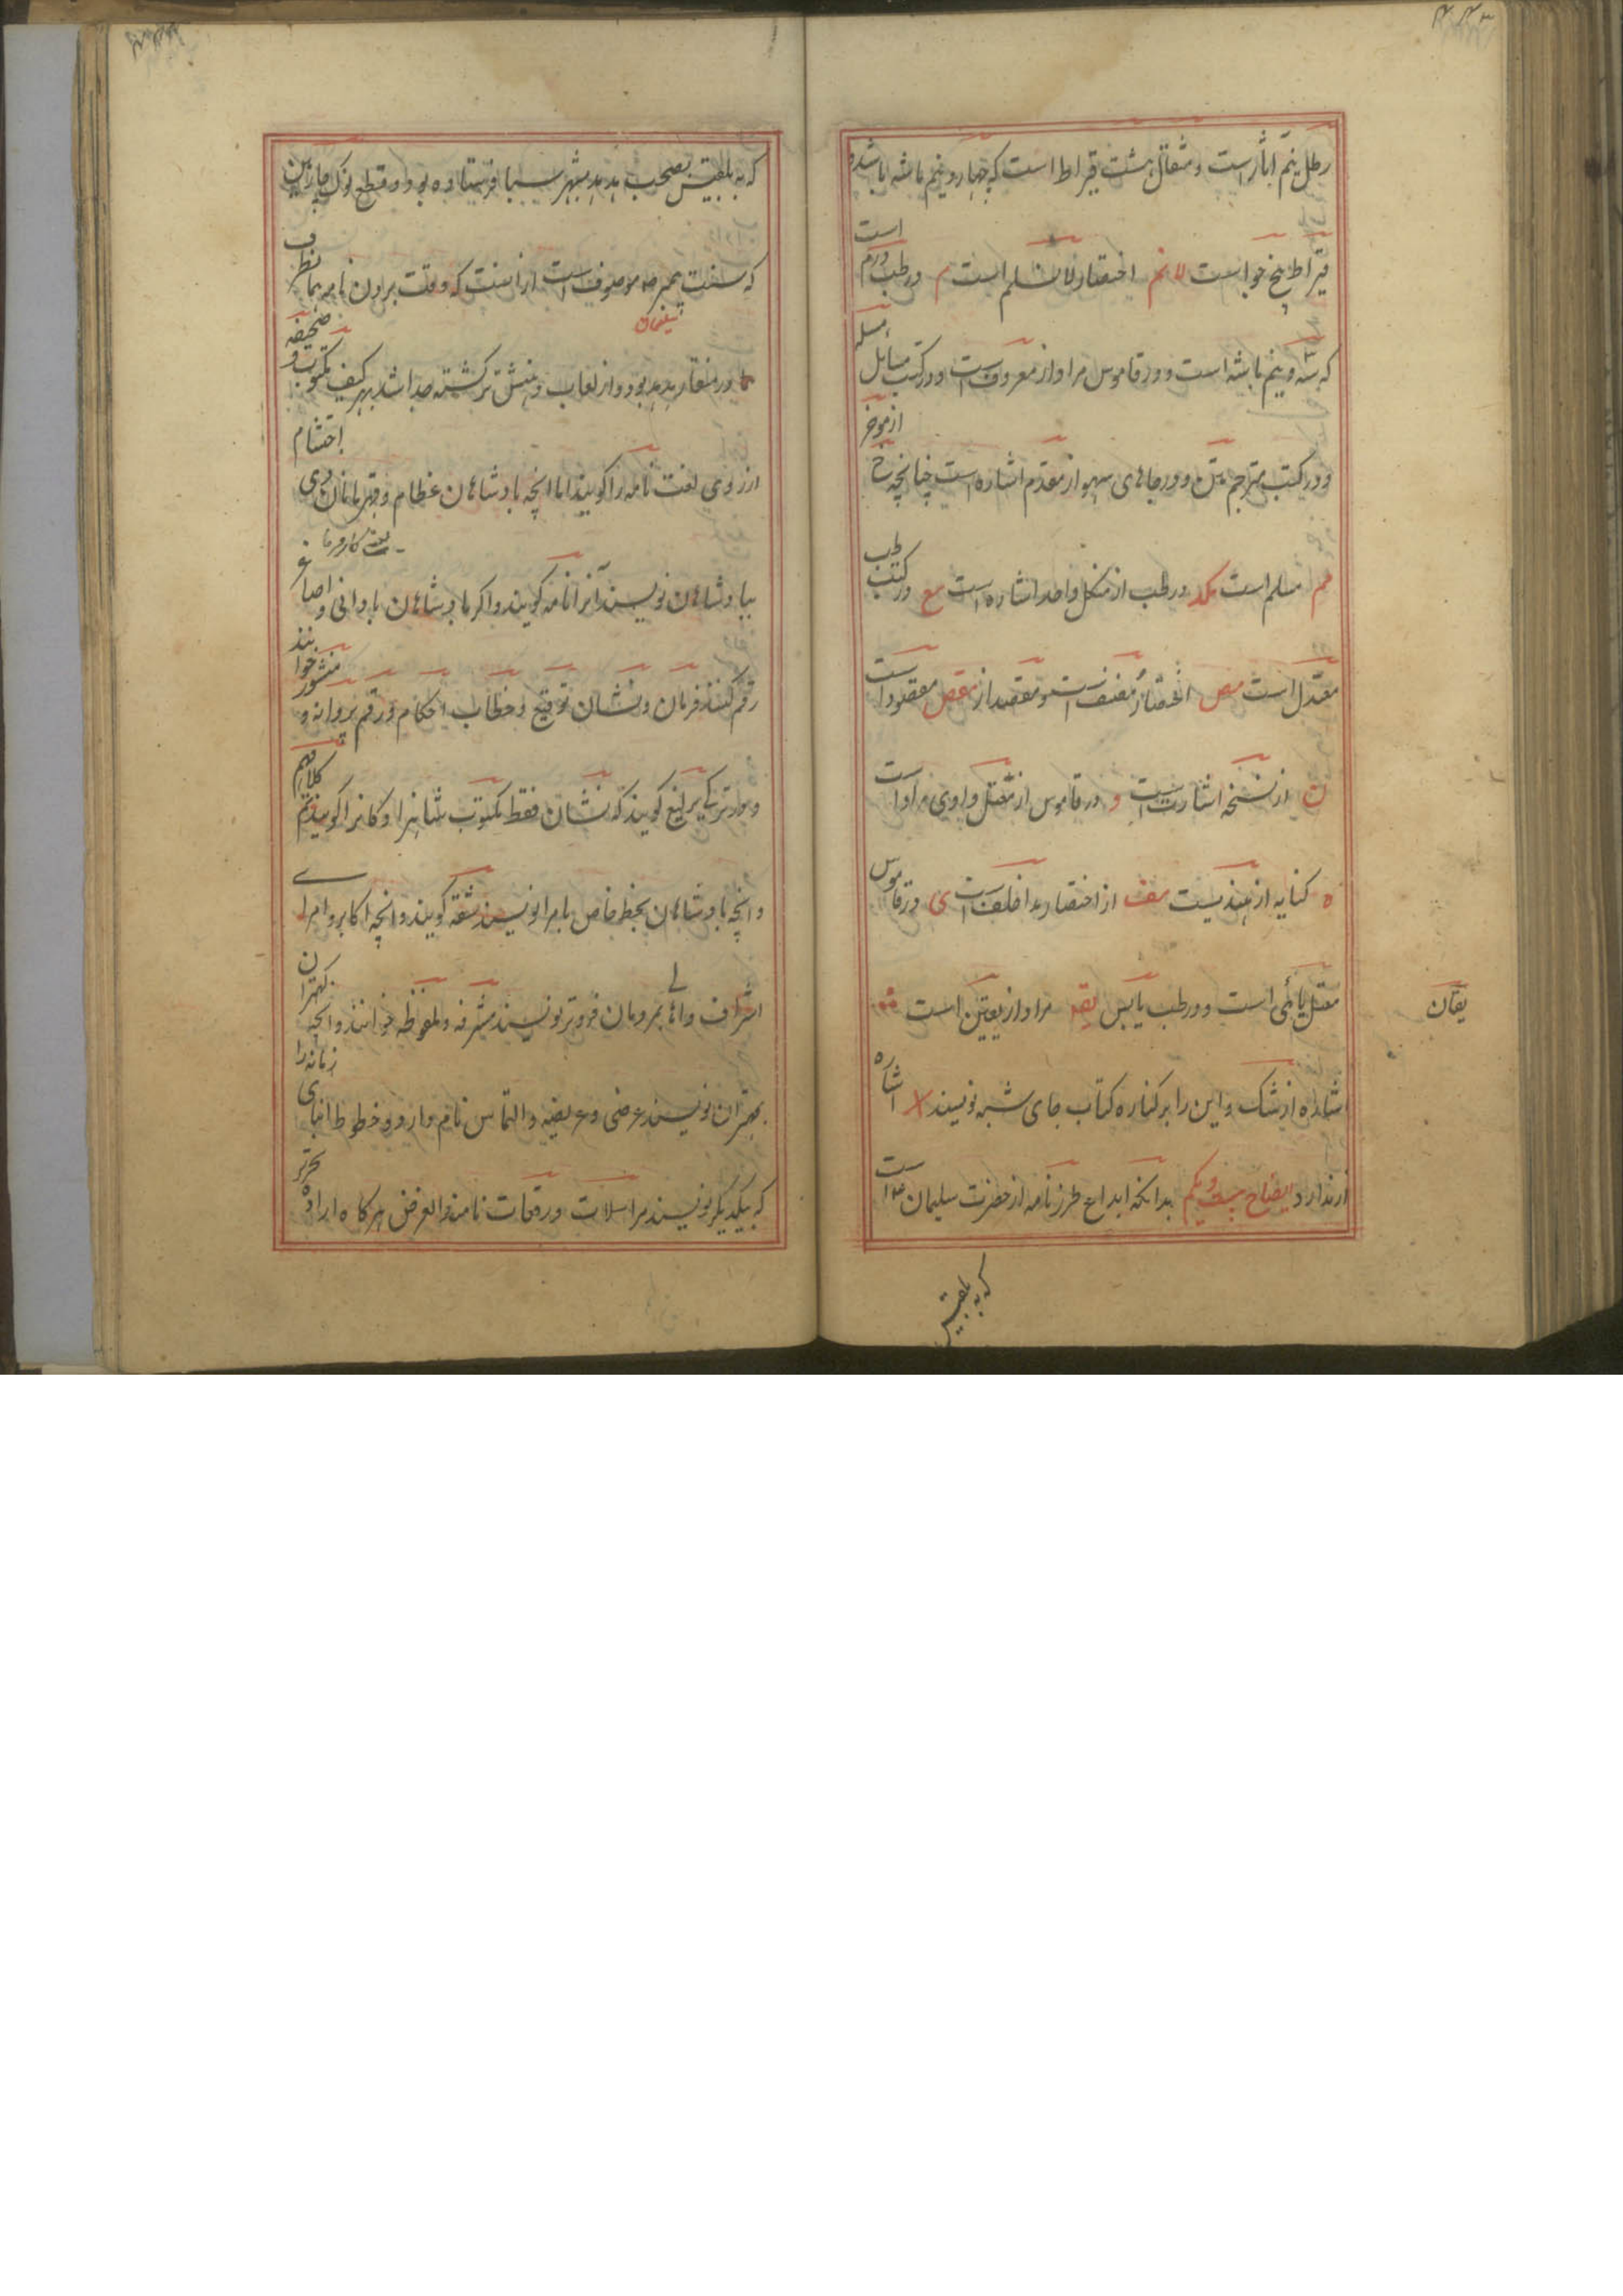 رطل نیم اثار است و مثقال هشت قیراط است که چهار و نیم ماشه باشد و
قیراط پنج جو است لانم اختصار لانسلم است م در طب درم است
که سه و نیم ماشه است و در قاموس مراد از معروف است و در کتب مسایل مسله
و در کتب تراجم متن و در جاهای سهو از مقدم اشاره است چنانچه خ از موخر
مم مسلم است مکد در طب از منکل واحد اشاره است مع در کتب طب
معتدل است مص اختصار مصنف است و مقصد از مقص مقصود است
ن از نسخه اشارت است و در قاموس از معتل واوی مراد است
ه کنایه از هندیست هف از اختصار هذا خلف است ی در قاموس
معتل یائی است و در طب یابس یقه مراد از یقین است
یقان
اشاره از شک و این را بر کناره کتاب جای شبه نویسند اشاره
از ندارد ایضاح بیست و یکم بدانکه ابداع طرز نامه از حضرت سلیمان ع است
که به بلقیس
که به بلقیس بصحبت هدهد بشهر سبا فرستاده بود و قطع نوک
که سنت پیمبر موصوف است از آنست که وقت بردن نامه
در منقار هدهد بود و از لعاب دهنش تر گشته جدا شد بهر کیف مکتوب و صحیفه
از روی لغت نامه را گویند اما آنچه بادشاهان عظام و قهرمانان ذوی احتشام
ببادشاهان نویسند آنرا نامه گویند و اگر بادشاهان بادانی و اصاغر
رقم کنند فرمان و نشان توقیع و خطاب احکام و رقم پروانه و منشور خوانند
و در ترکی یرلیغ گویند که نشان فقط مکتوب شاهزادگان را گویند
و آنچه بادشاهان بخط خاص بامرا نویسند شقه گویند و آنچه اکابر و امرا
اشراف و اهالی بمردمان فروتر نویسند مشرفه و ملفوظه خوانند و آنچه کهتران
بمهتران نویسند عرضی و عریضه و التماس نام دارد و خطوط ابنای زمانه را
که بیکدیگر نویسند مراسلات و رقعات نامند الغرض هرگاه اراده تحریر